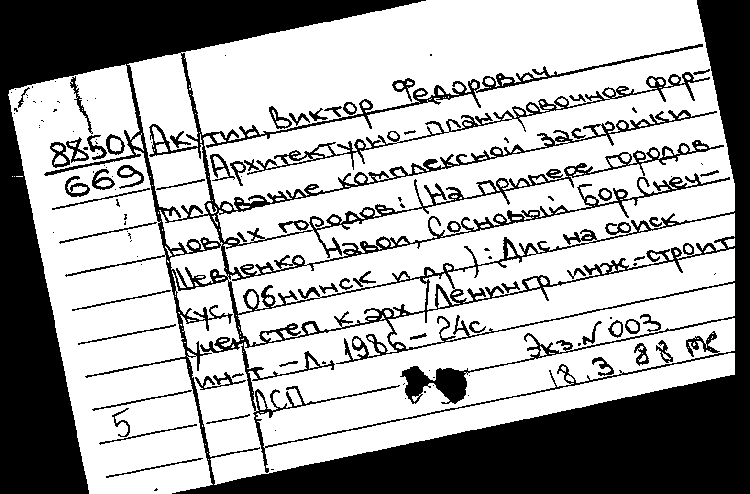 88-50К Акутин, Виктор Федорович.
669 Архитектурно-планировочное фор-
мирование комплексной застройки
новых городов: (На примере городов
Шевченко, Навои, Сосновый Бор, Снеч-
кус, Обнинск и др.): Дис. на соиск.
учен. степ. к. арх / Ленингр. инж.-строит.
ин-т. - Л., 1986 - 24с.
ДСП. Экз. N 003
5 18.3.88